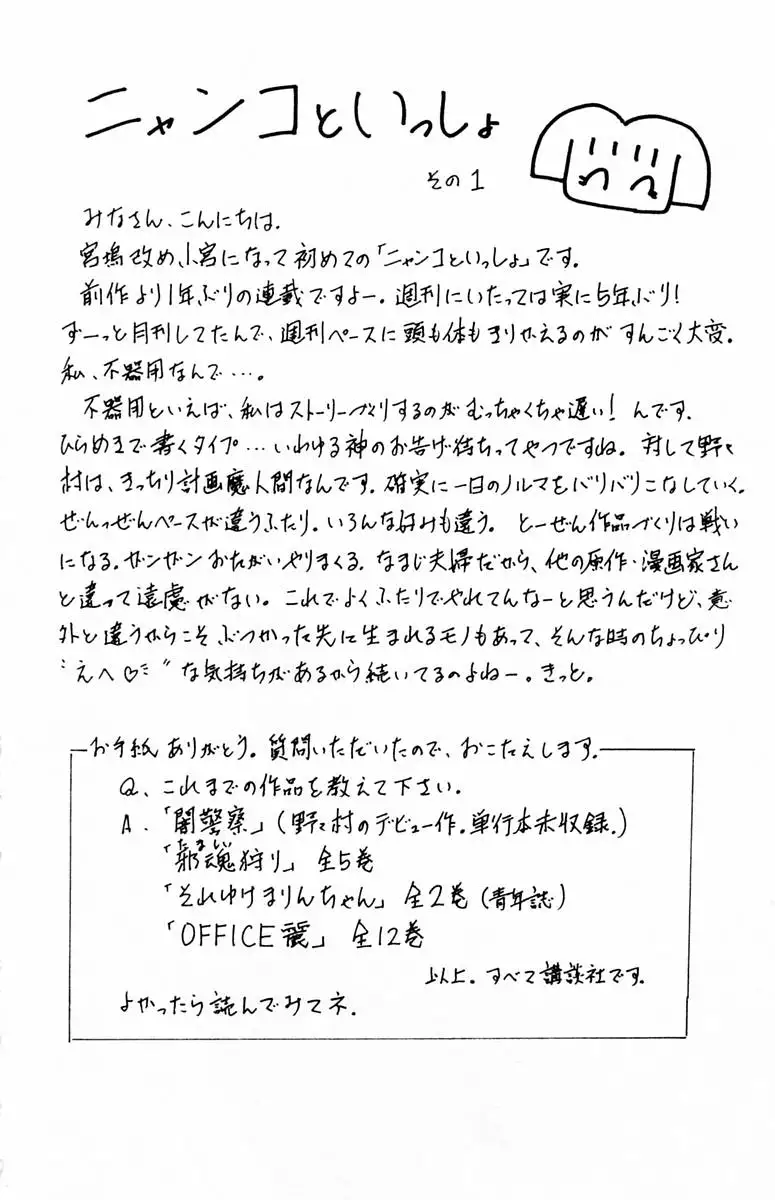 ニャンコといっしょ
その1
みなさん、こんにちは.
宮塢改め、小宮になって初めての「ニャンコといっしょ」です。
前作より1年ぶりの連載ですよー。週刊にいたっては実に5年ぶり!
ずーっと月刊してたんで、週刊ペースに頭も体もきりかえるのが すんごく大変。
私、不器用なんで…。
不器用といえば、私はストーリーづくりするのが むっちゃくちゃ遅い! んです.
ひらめきで書くタイプ…いわける神のお告げ待ちってやつですね。対して野々
村は、きっちり計画魔人間なんです. 確実に一日のノルマをバリバリこなしていく.
ぜんっぜんペースが違うふたり. いろんな好みも違う。 とーぜん作品づくりは戦い
になる. ガンガン おたがいやりまくる. なまじ夫婦だから、他の原作・漫画家さん
と違って遠慮がない。これでよくふたりでやれてんなーと思うんだけど、意
外と違うからこそ ぶつかった先に生まれるモノもあって、そんな時のちょっぴり
"えへ♡"な気持ちがあるから続いてるのよねー。きっと。
お手紙 ありがとう。質問いただいたので、おこたえします.
Q、これまでの作品を教えて下さい.
A.「闇警察」(野々村のデビュー作. 単行本未収録.)
「邪魂狩り」 全5巻
たまい
「それゆけまりんちゃん」 全2巻 (青年誌)
「OFFICE麗」 全12巻
以上。すべて講談社です.
よかったら読んでみてネ.